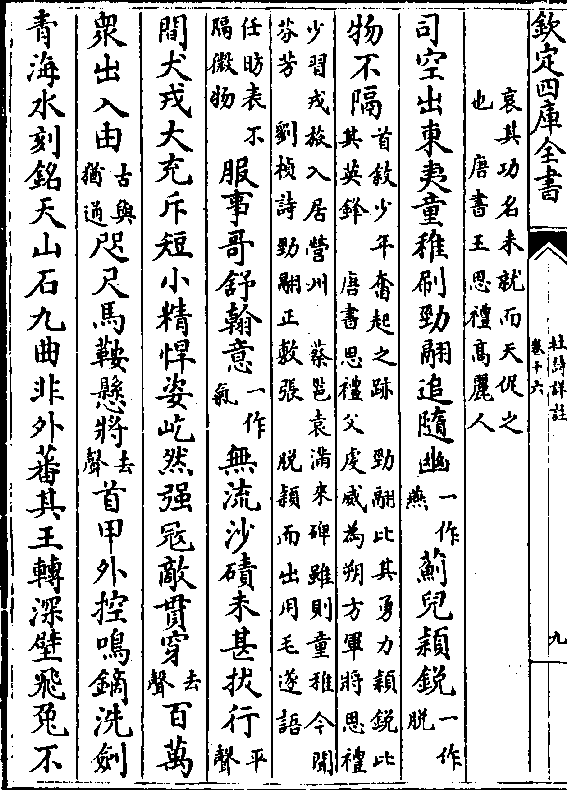 欽定四庫全書
杜詩詳註
卷十六
九
哀其功名未就而天促之
也 唐書王思禮髙麗人
司空出東夷童稚刷勁翮追隨幽一作燕薊兒穎銳一作脫
物不隔首敘少年奮起之跡 勁翮比其勇力穎銳比其英鋒 唐書思禮父虔威為朔方軍將思禮
少習戎旅入居營州 蔡邕袁滿來碑雖則童稚令聞
芬芳 劉楨詩勁翮正敷張 脫穎而出用毛遂語
任昉表不隔微物服事哥舒翰意一作氣無流沙磧未甚拔行平聲
間犬戎大充斥短小精悍姿屹然强冦敵貫穿去聲百萬
衆出入由古與猶通咫尺馬鞍懸將去聲首甲外控鳴鏑洗劍
青海水刻銘天山石九曲非外蕃其王轉深壁飛兎不